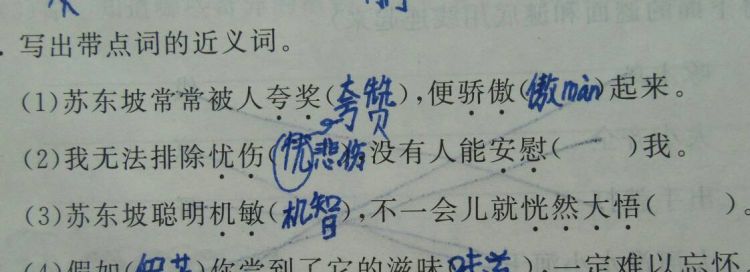 写出带点词的近义词。
(1)苏东坡常常被人夸奖(夸赞),便骄傲(傲màn)起来。
(2)我无法排除忧伤(忧悲伤)没有人能安慰( )我。
(3)苏东坡聪明机敏(机智),不一会儿就恍然大悟( )。
(4)假如( )你尝到了它的滋味( ),一定难以忘怀